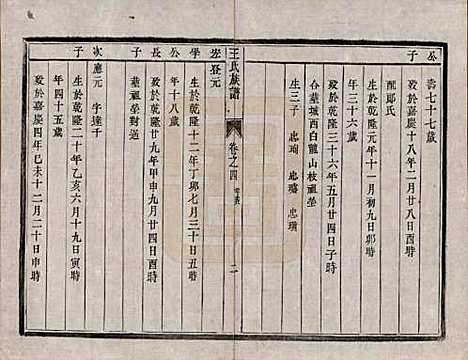 公
子
壽七十七歲
歿於嘉慶十八年二月八日酉時
配郎氏
生於乾隆元年十一月初九日卯時
歿於乾隆三十六年五月廿四日子時
年三十六歲
合葬城西白龍山枝祖塋
生三子 忠珣 忠璐 忠璜
王氏族譜
卷之四
二
學
公
長
子
丕登元
生於乾隆十二年丁卯七月三十日丑時
歿於乾隆廿九年甲申九月廿四日酉時
年十八歲
葬祖塋對過
次
子
應元 字達千
生於乾隆二十年乙亥六月十九日寅時
歿於嘉慶四年己未十二月二十日申時
年四十五歲